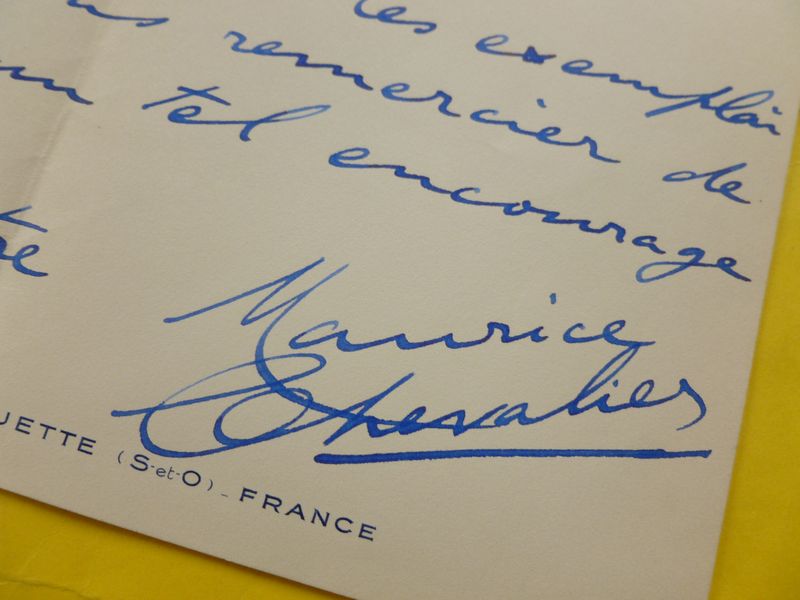 les exemplai
remercier de
un tel encourage
Maurice
Chevalier
UETTE (S-et-O) - FRANCE